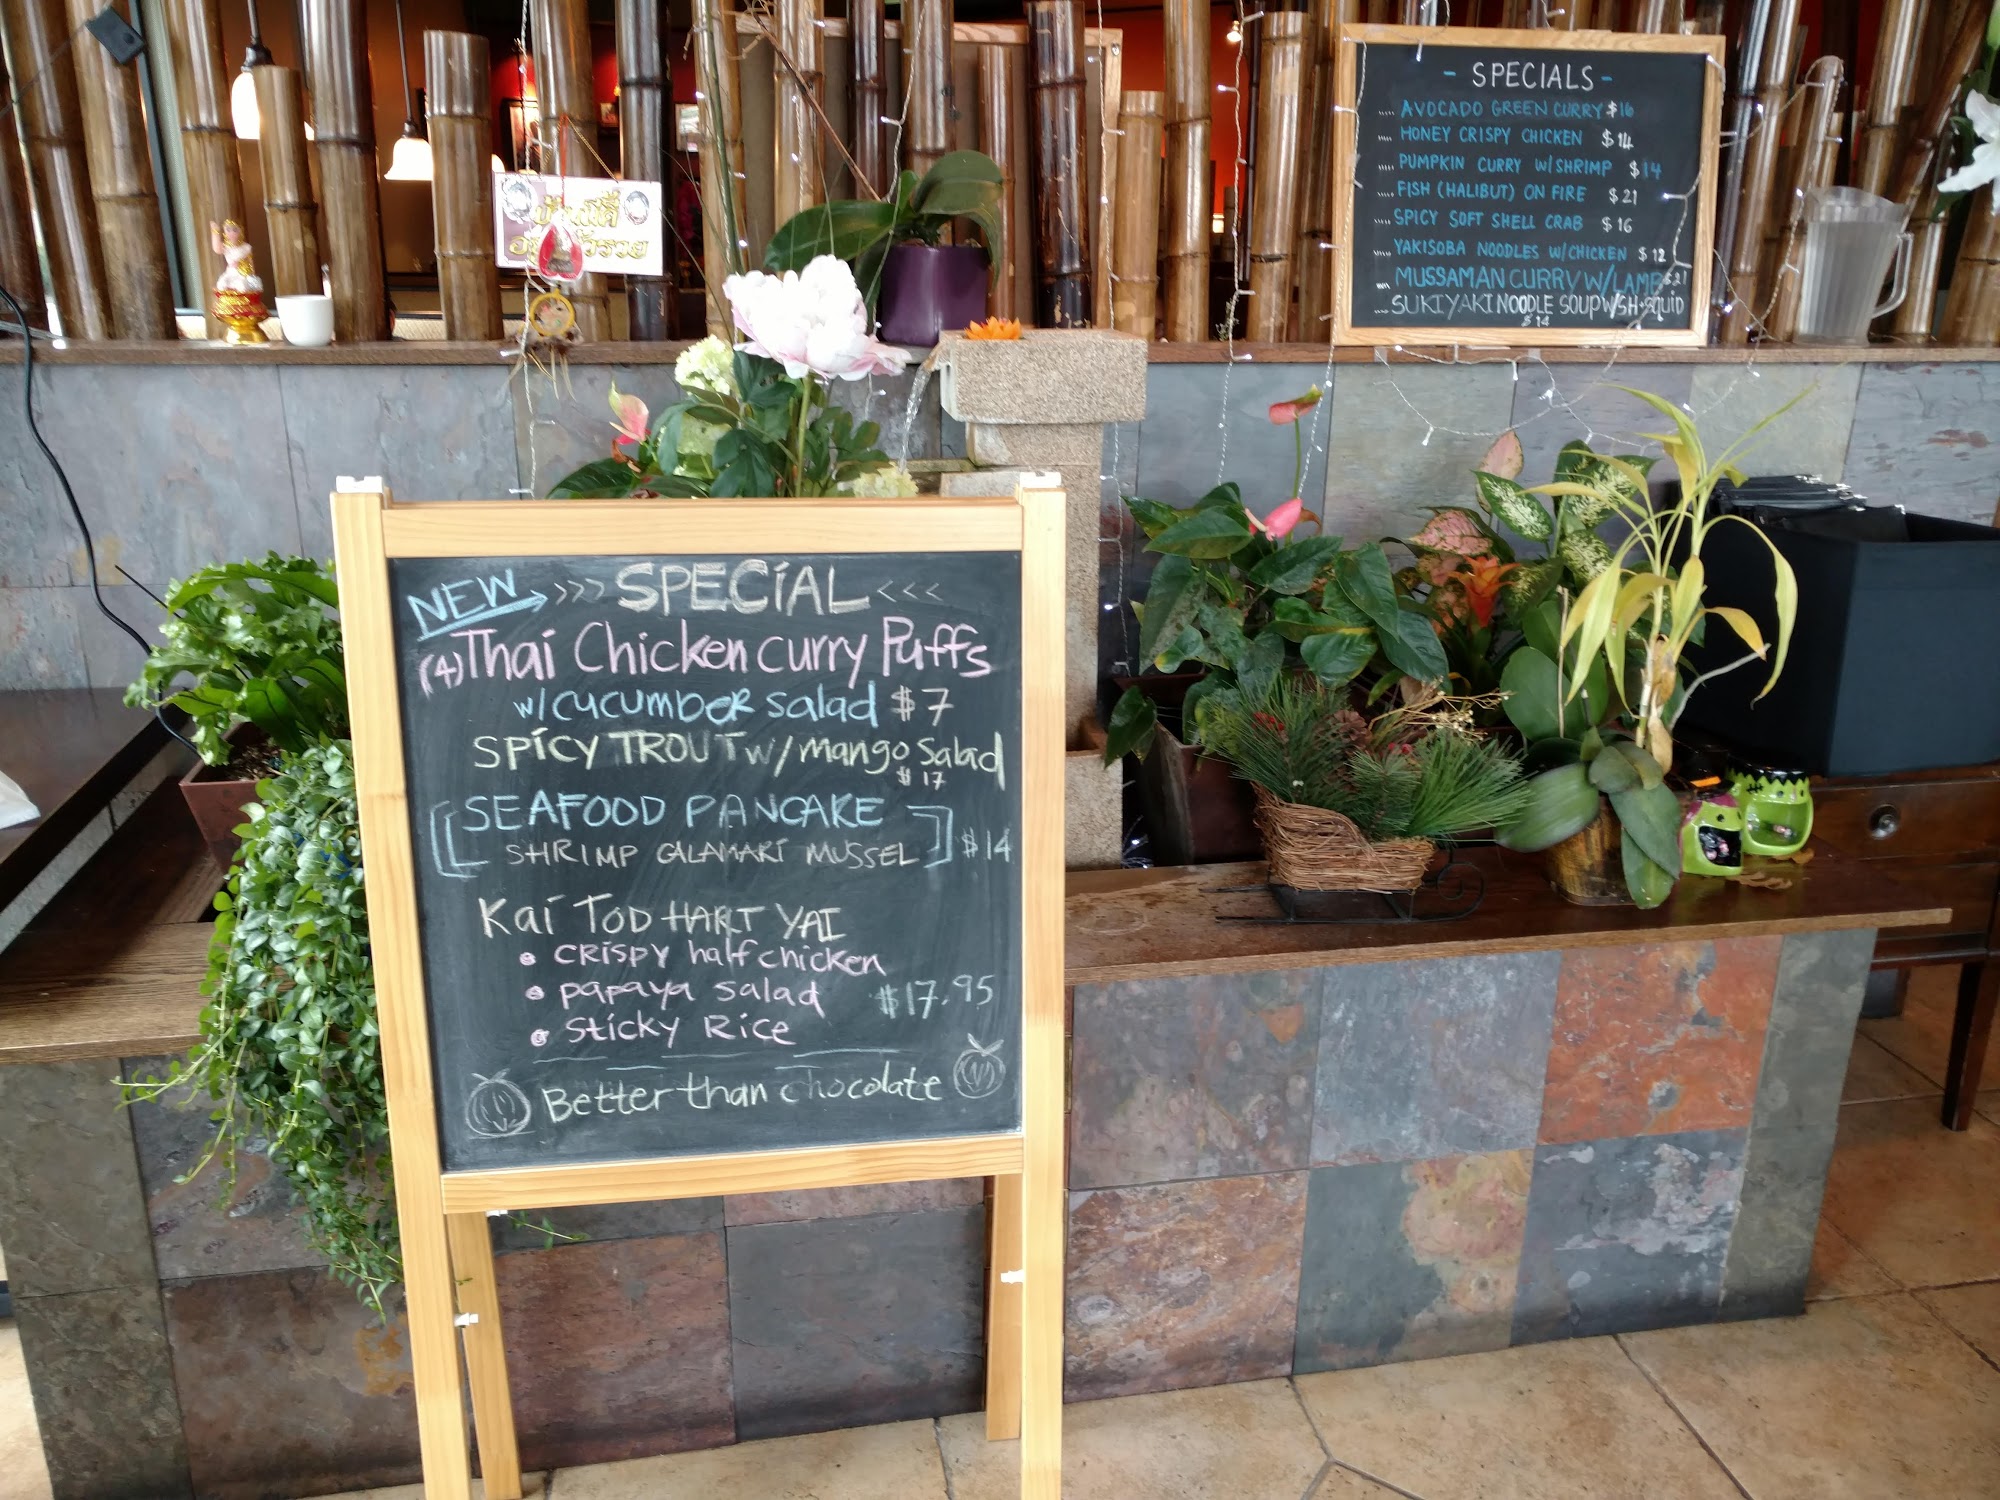 - SPECIALS -
..... AVOCADO GREEN CURRY $16
.... HONEY CRISPY CHICKEN $14
..... PUMPKIN CURRY W/SHRIMP $14
.... FISH (HALIBUT) ON FIRE $21
.... SPICY SOFT SHELL CRAB $16
.... YAKISOBA NOODLES W/CHICKEN $12
.... MUSSAMAN CURRY W/LAMB $21
.... SUKIYAKI NOODLE SOUP W/SH+SQUID
$14
NEW >>> SPECiAL <<<
(4) Thai Chicken curry Puffs
w/ cucumber salad $7
SPICY TROUT w/ mango Salad
$17
[SEAFOOD PANCAKE
SHRIMP CALAMARI MUSSEL] $14
Kai TOD HART YAI
• CRISPY half chicken
• papaya salad $17.95
• Sticky Rice
Better than chocolate